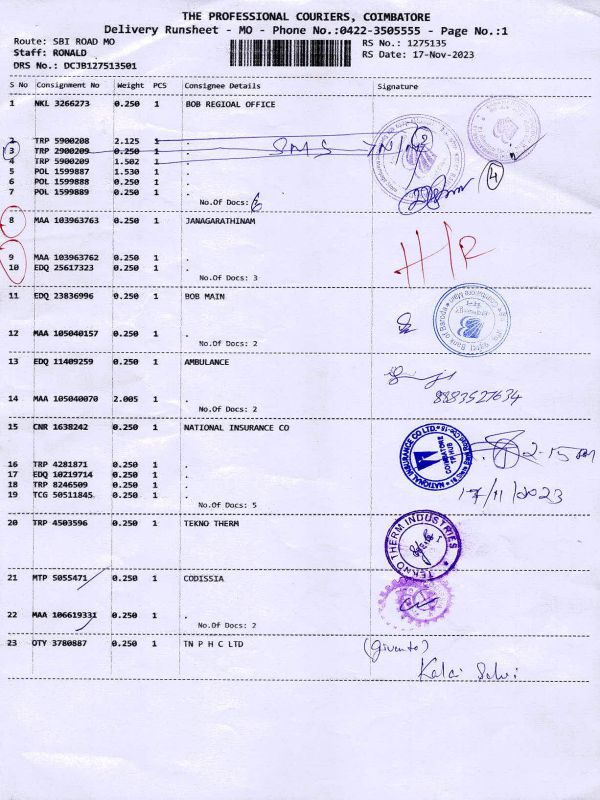 THE PROFESSIONAL COURIERS, COIMBATORE
Delivery Runsheet - MO - Phone No.:0422-3505555 - Page No.:1
Route: SBI ROAD MO
RS No.: 1275135
Staff: RONALD
RS Date: 17-Nov-2023
DRS No.: DCJB127513501
S No Consignment No Weight PCS Consignee Details Signature
1 NKL 3266273 0.250 1 BOB REGIOAL OFFICE
2 TRP 5900208 2.125 1 .
3 TRP 2900209 0.250 1 .
SMS
4 TRP 5900209 1.502 1 .
5 POL 1599887 1.530 1 .
4
6 POL 1599888 0.250 1 .
7 POL 1599889 0.250 1 .
No.Of Docs:
8 MAA 103963763 0.250 1 JANAGARATHINAM
H/R
9 MAA 103963762 0.250 1 .
10 EDQ 25617323 0.250 1 .
No.Of Docs: 3
11 EDQ 23836996 0.250 1 BOB MAIN
12 MAA 105040157 0.250 1 .
No.Of Docs: 2
13 EDQ 11409259 0.250 1 AMBULANCE
14 MAA 105040070 2.005 1 .
8883527634
No.Of Docs: 2
15 CNR 1638242 0.250 1 NATIONAL INSURANCE CO
NATIONAL INSURANCE CO LTD.
COIMBATORE
TP HUB
2-15 pm
16 TRP 4281871 0.250 1 .
17 EDQ 10219714 0.250 1 .
18 TRP 8246509 0.250 1 .
19 TCG 50511845 0.250 1 .
17/11/2023
No.Of Docs: 5
20 TRP 4503596 0.250 1 TEKNO THERM
TEKNO THERM INDUSTRIES
21 MTP 5055471 0.250 1 CODISSIA
22 MAA 106619331 0.250 1 .
No.Of Docs: 2
23 OTY 3780887 0.250 1 TN P H C LTD
Kalai Selvi